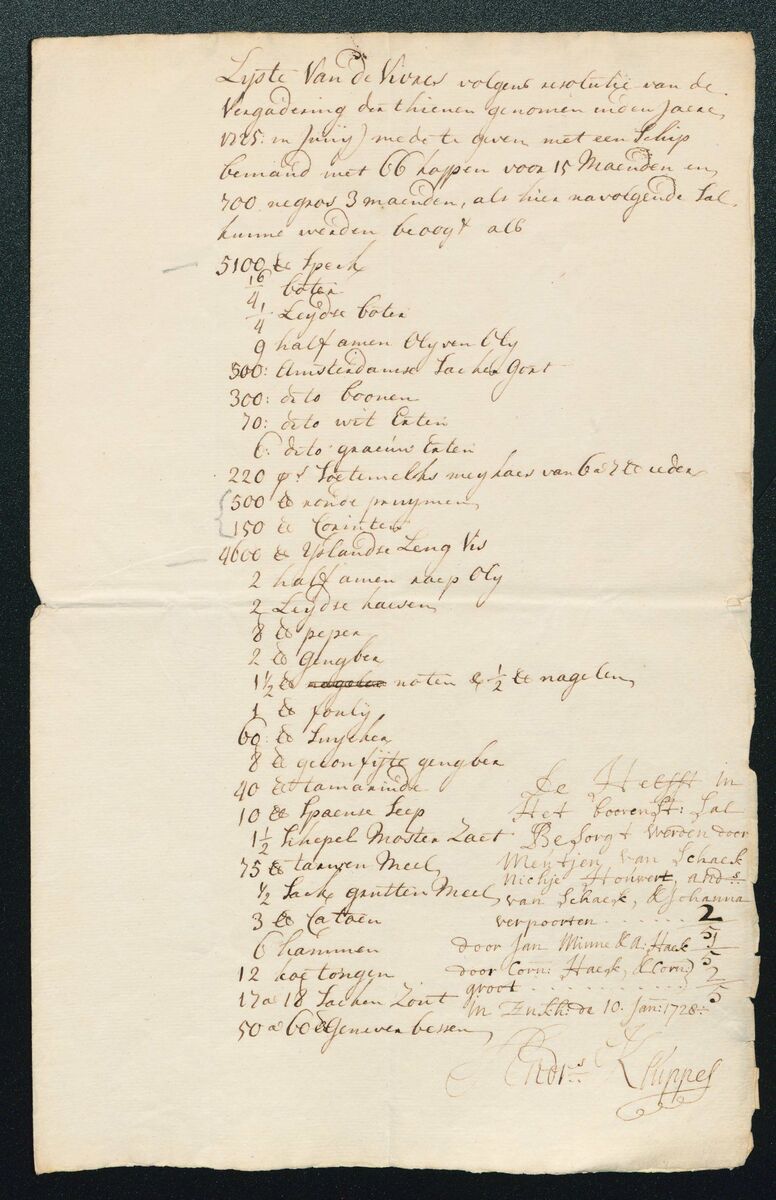 Lyste Van de Vivres volgens resolutie van de
Vergadering der thienen genomen inden Jaere
1725: in Junij) mede te geven met een Schip
bemand met 66 koppen voor 15 Maenden en
700 negros 3 maenden, als hier navolgende Sal
kunne werden beoogt als
5100 lb Speck
16/4 boter
1/4 Leydse boter
9 half amen Olyven Oly
500: Amsterdamse Sacken Gort
300: dito boonen
70: dito wit Erten
6: dito graeuw Erten
220 ps Soetemelks mey kaes van 6 a 7 lb ieder
500 lb ronde pruymen
150 lb Corinten
4600 lb Yslandse Leng Vis
2 half amen raep Oly
2 Leydse kaesen
8 lb peper
2 lb gengber
1 1/2 lb nagelen noten & 1/2 lb nagelen
1 lb fouly
60: lb Suycker
8 lb geconfijte gengber
40 lb tamarinde
10 lb Spaense Seep
1 1/2 Schepel Moster Zaet
75 lb tarwen Meel
1/2 Sack grutten Meel
3 lb Catoen
6 hammen
12 koe tongen
17 a 18 Sacken Zout
50 a 60 lb Genever bessen
De Helfft in
Het boovenst: Sal
Besorgt werden door
Mentjen van Schaeck
Nichje Houwert, and:s
van Schaeck, & Johanna
verpoorten . . . . . . 2/5
door Jan Minne & A: Haek 1/5
door Corn: Haeck, & Corn:
groot . . . . . . . . 2/5
in Enkh: de 10. Jan: 1728:
And:s Kluppel